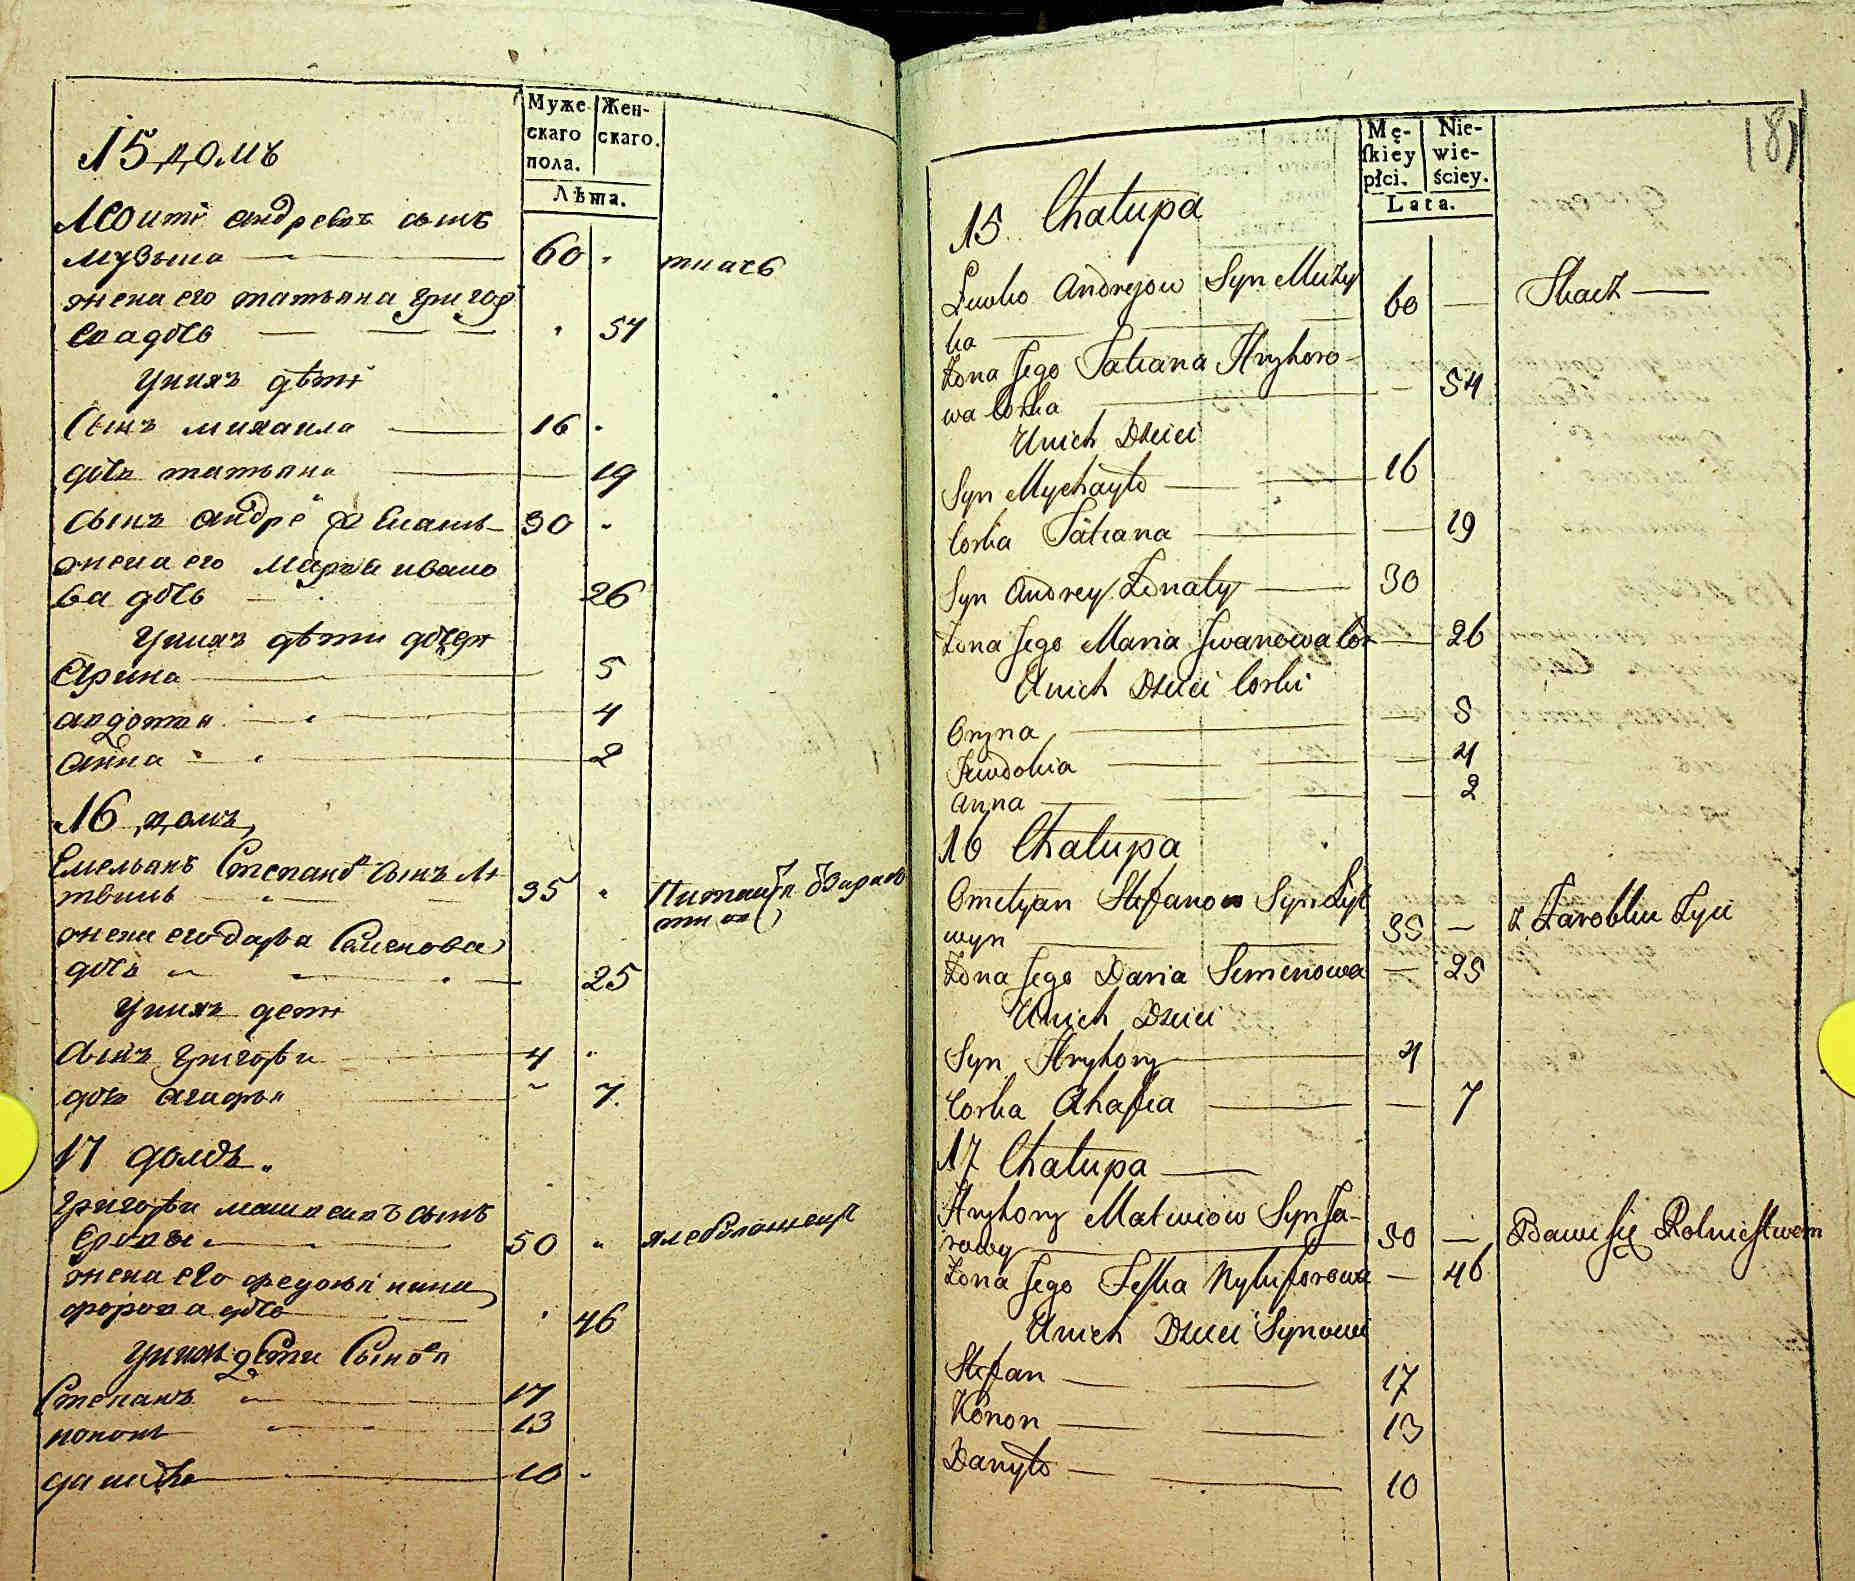 Муже
скаго
пола.
Жен-
скаго.
Лѣта.
15 домъ
Леонти андреевъ сынъ
музыка 60 ткачъ
жена его татьяна григор
ева дочь 54
У нихъ дѣти
Сынъ михаила 16
дочь татьяна 19
Сынъ андрей женатъ 30
жена его марья ивано
ва дочь 26
У нихъ дѣти дочери
Арина 5
авдотия 4
Анна 2
16 домъ
Емельянъ Степановъ сынъ Ли
твинъ 35
жена его дарья Семенова
дочь 25
У нихъ дети
Сынъ григорѣи 4
дочь Агафья 7
17 домъ
григорѣи сынъ
50
жена его федосья ники
форова дочь 46
у нихъ дѣти Сыновя
Степанъ 17
кононъ 13
данило 10
Mę-
ſkiey
płci.
Nie-
wie-
ściey.
Lata.
181
15 Chałupa
Lewko Andrejow Syn Muzy
ka 60 — Tkacz
Żona Jego Tatiana Hryhoro-
wa Corka — 54
U nich Dzieci
Syn Mychayło 16
Corka Tatiana — 19
Syn Andrey Żonaty 30
Żona Jego Maria Jwanowa Cor — 26
U nich Dzieci Corki
Oryna — 5
Jewdokia — 4
Anna — 2
16 Chałupa
Omelyan Stefanow Syn Lyt
wyn 35 — z Zarobku Żyie
Żona Jego Daria Semenowa — 25
U nich Dzieci
Syn Hryhory 4
Corka Ahafia — 7
17 Chałupa
Hryhory Matwiow Syn Ja-
rowy 50 — Bawi się Rolnictwem
Żona Jego Feſka Nykiforowa — 46
U nich Dzieci Synowi
Stefan 17
Konon 13
Danyło 10